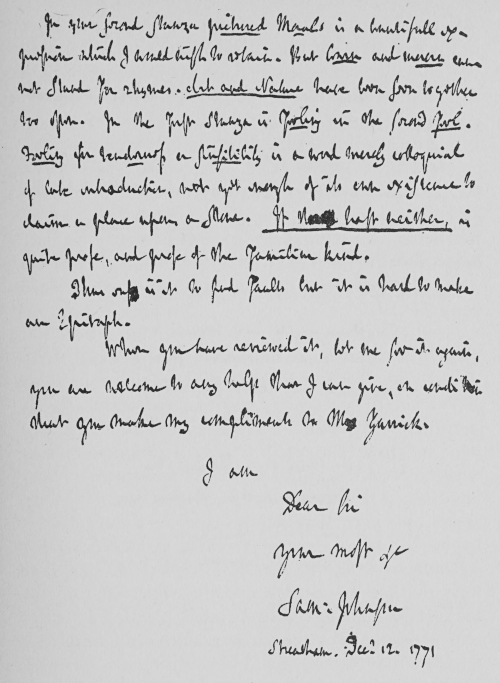 In your second Stanza pictured Morals is a beautifull ex-
pression which I would wish to retain. But learn and mourn can-
not stand for rhymes. Art and Nature have been seen together
too often. In the first Stanza is feeling in the second feel.
Feeling for tenderness or sensibility is a word merely colloquial
of late introduction, not yet enough of its own existence to
claim a place upon a Stone. If thou hast neither, is
quite prose, and prose of the familiar kind.
Thus easy is it to find faults but it is hard to make
an Epitaph.
When you have reviewed it, let me see it again,
you are welcome to any help that I can give, on condition
that you make my compliments to Mrs Garrick.
I am
Dear Sir
your most &c
Sam: Johnson
Streatham. Dec. 12. 1771